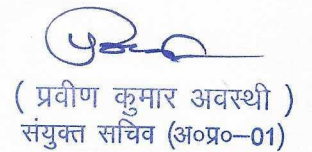 ( प्रवीण कुमार अवस्थी )
संयुक्त सचिव (अ०प्र०–01)